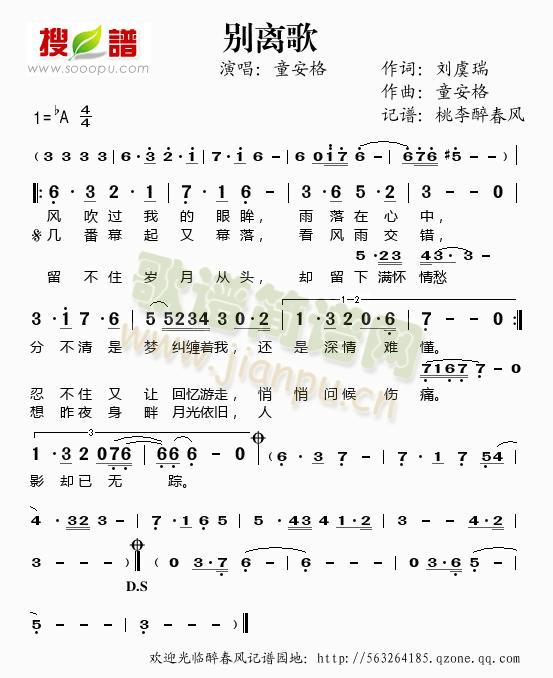 搜谱
www.sooopu.com
别离歌
演唱：童安格
作词：刘虞瑞
作曲：童安格
记谱：桃李醉春风
1=♭A 4/4
( 3 3 3 3 | 6·3 2·1 | 7·1 6 - | 6 0176 - | 676 #5 - - )
6·3 2·1 | 7·1 6 - | 3·6 5·2 | 3 - - 0
风吹过我的眼眸，雨落在心中，
几番幕起又幕落，看风雨交错，
5·23 43·3 -
留不住岁月从头，却留下满怀情愁
3·1 7·6 | 5 5234 3 0·2 | 1·3 2 0·6 | 7 - - 0 :|
1-2
分不清是梦纠缠着我，还是深情难懂。
7167 7 - 0
忍不住又让回忆游走，悄悄问候伤痛。
想昨夜身畔月光依旧，人
3
1·3 2 076 | 6·66 - 0 | ( 6·3 7 - | 7·1 7 54
影却已无踪。
4·323 - | 7·1 65 | 5·43 41·2 | 3 - - 4·2
3 - - - ) ( 0 03·7 6 - - - | 0 03·6
D.S
5 - - - | 3 - - - )
欢迎光临醉春风记谱园地：http://563264185.qzone.qq.com
歌谱简谱网
www.jianpu.cn